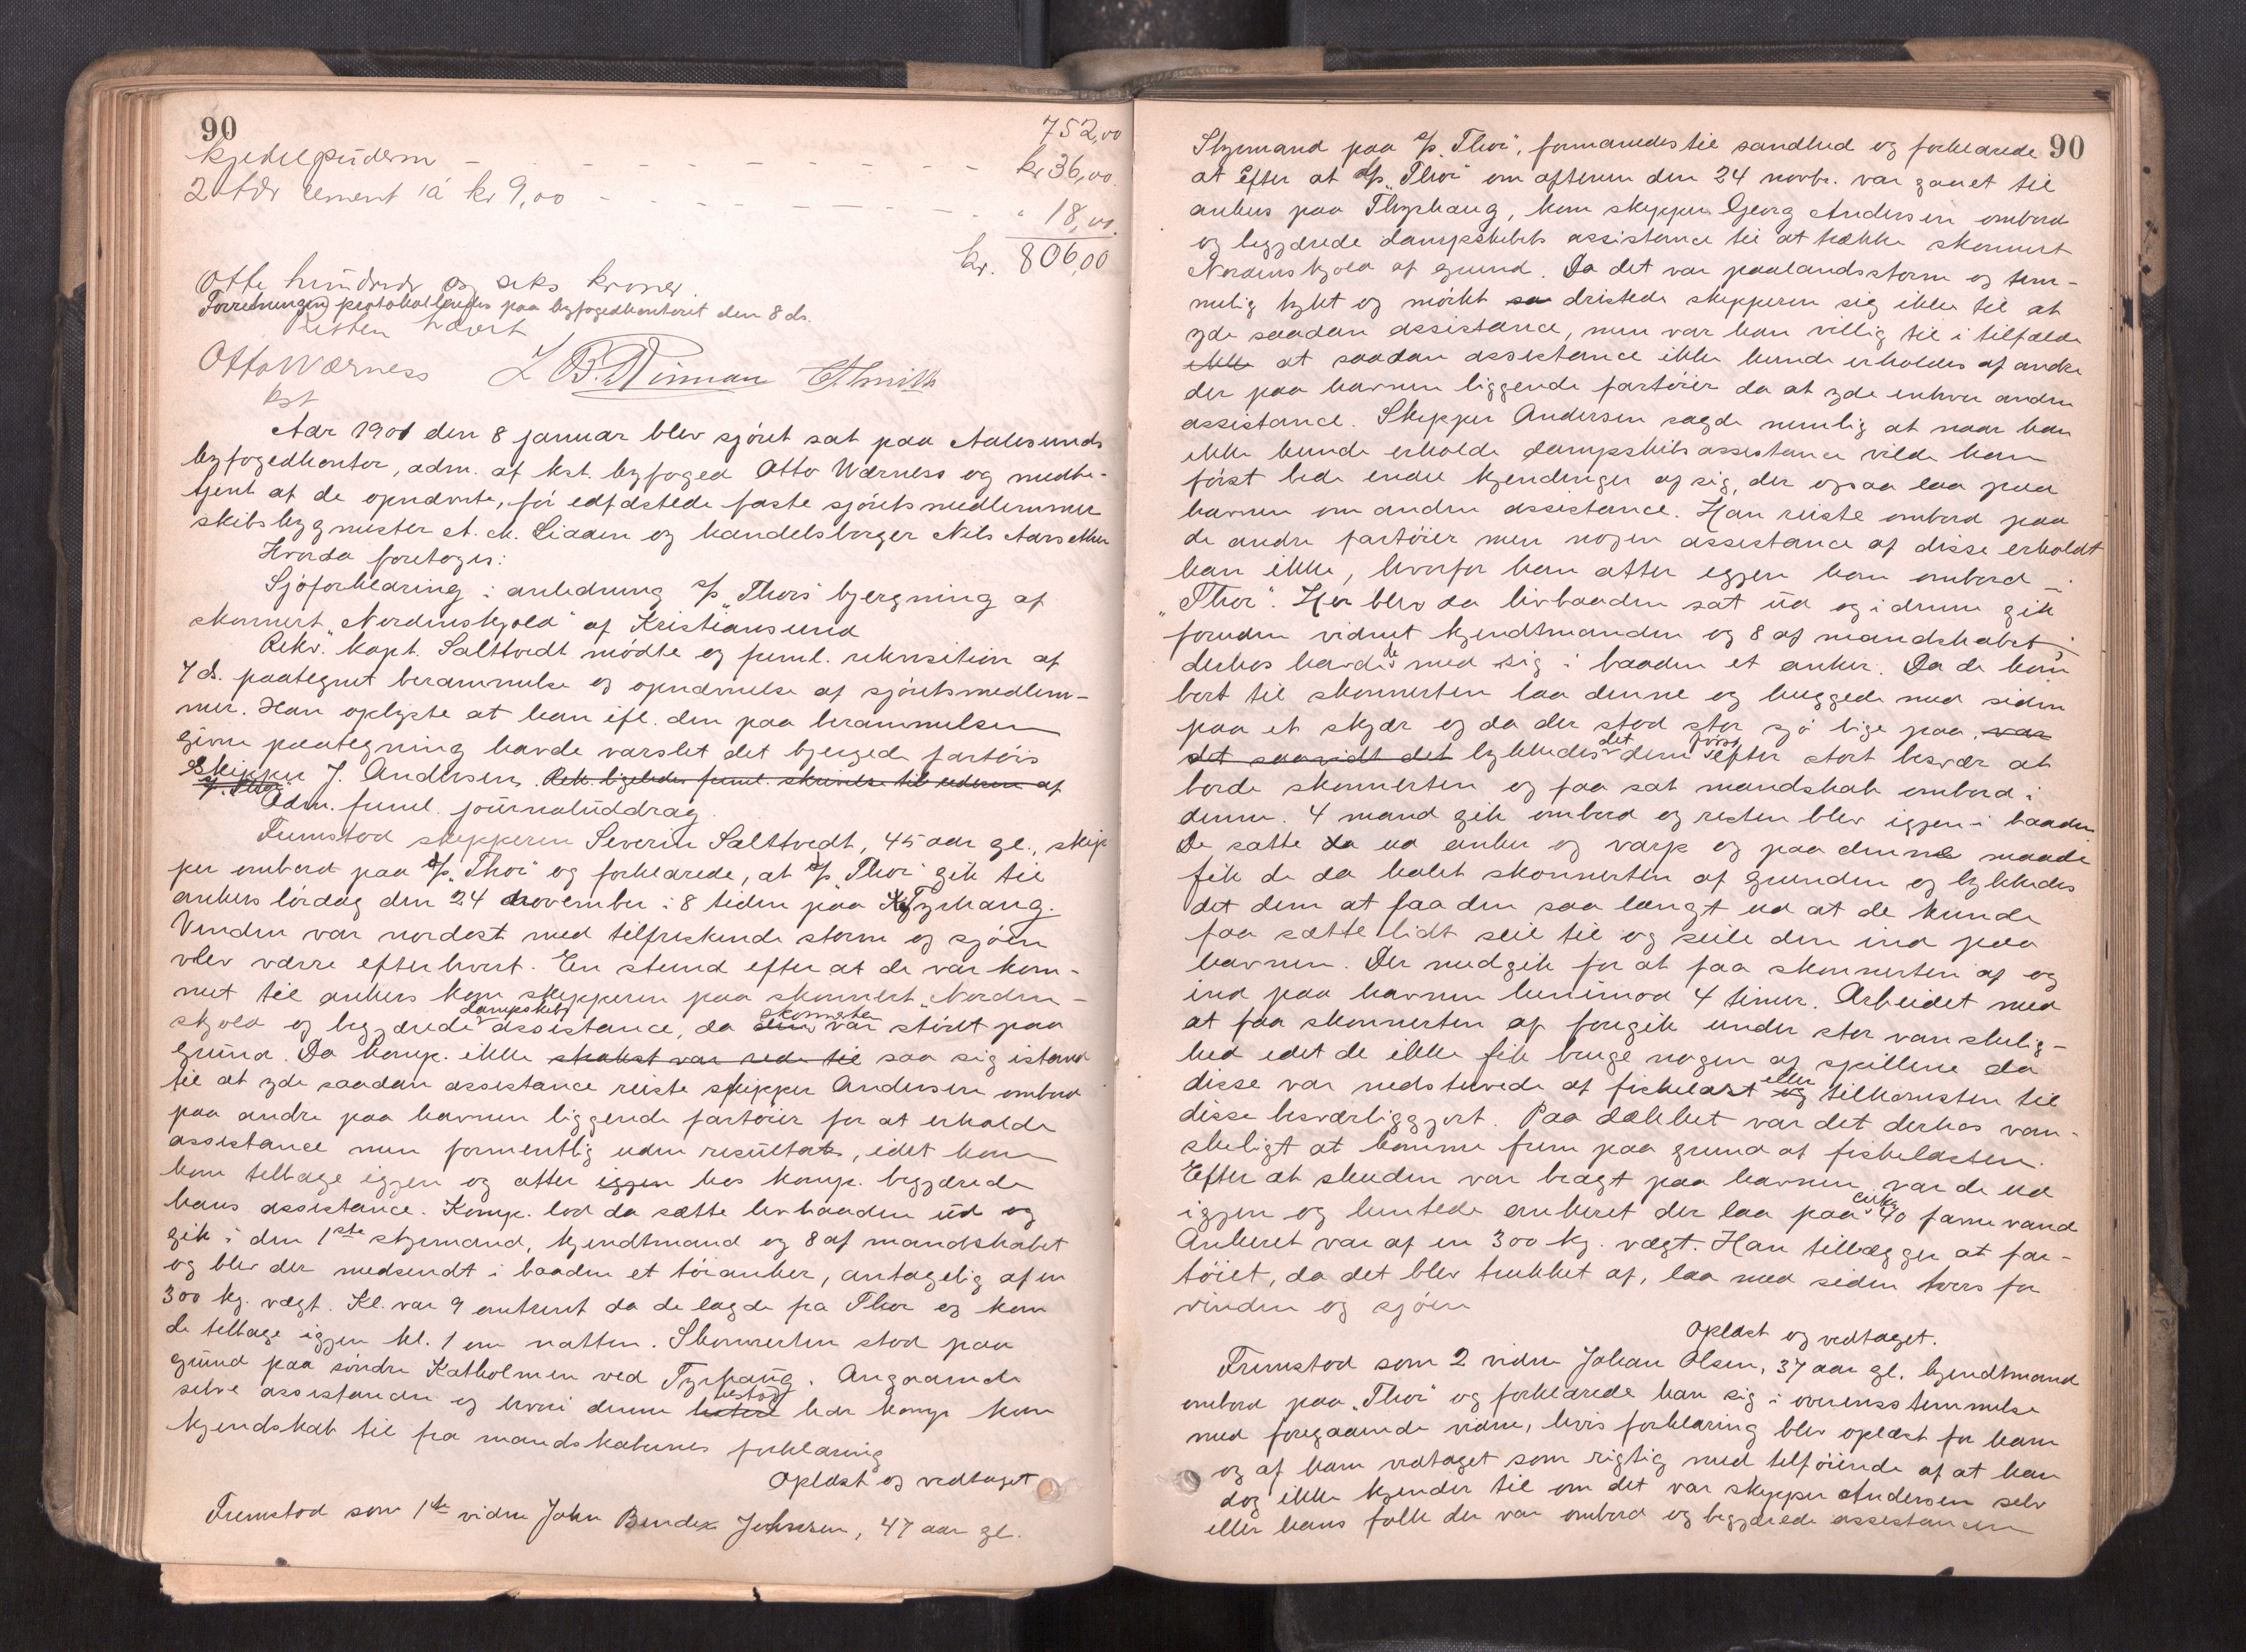 90
752,00
Kjedelpudern - - - - - - - - - - kr 36,00
2 tdr cement à kr 9,00 - - - - - - - " 18,00
kr. 806,00
Otte hundrede og seks kroner.
Forretningen protokolleredes paa byfogedkontoret den 8 ds.
Retten hævet
Otto Wærness
kst
Aar 1901 den 8 januar blev sjöret sat paa Aalesunds
byfogedkontor, adm. af kst. byfoged Otto Wærness og medbe-
tjent af de opnævnte, för edfæstede faste sjöretsmedlemmer
skibsbygmester A. M. Liaaen og handelsborger Nils Aarsether
Hvorda foretoges:
Sjöforklaring i anledning s/s "Thors" bjergning af
skonnert "Nordenskjold" af Kristiansund
Rekv. kapt. Salttvedt mödte og freml. rekvisition af
7 ds. paategnet berammelse og opnævnelse af sjöretsmedlem-
mer. Han oplyste at han ifl. den paa berammelsen
givne paategning havde varslet det bjergede fartöis
Skipper J. Andersen. Rekv. ligeledes freml. skrivelse til rederen af
s/s. Thor
Adm. freml. journaluddrag.
Fremstod skipperen Severin Salttvedt, 45 aar gl., skip
per ombord paa s/s "Thor" og forklarede, at s/s "Thor" gik til
ankers lördag den 24 november i 8 tiden paa Tyrhaug.
Vinden var nordost med tilfriskende storm og sjöen
blev værre efterhvert. En stund efter at de var kom-
met til ankers kom skipperen paa skonnert "Norden-
skjold og begjærede dampskibs assistance, da skonnerten var stödt paa
grund. Da komp. ikke strakst var rede til saa sig istand
til at yde saadan assistance reiste skipper Andersen ombord
paa andre paa havnen liggende fartöier for at erholde
assistance men formentlig uden resultat, idet han
kom tilbage igjen og atter igjen hos komp. begjærede
hans assistance. Komp. lod da sætte livbaaden ud og
gik i den 1ste styrmand, kjendtmand og 8 af mandskabet
og blev der medsendt i baaden et töianker, antagelig af en
300 kg. vægt. Kl. var 9 omtrent da de lagde fra Thor og kom
de tilbage igjen kl. 1 om natten. Skonnerten stod paa
grund paa söndre Katholmen ved Tyrhaug. Angaaende
selve assistancen og hvori denne bestod har komp kun
kjendskab til fra mandskabernes forklaring
Oplæst og vedtaget
Fremstod som 1ste vidne John Bendix Johnsen, 47 aar gl.
90
Styrmand paa s/s "Thor", formanedes til sandhed og forklarede
at Efter at s/s "Thor" om aftenen den 24 novbr. var gaaet til
ankers paa Thyrhaug, kom skipper Georg Andersen ombord
og begjærede dampskibets assistance til at trække skonnert
Nordenskjold af grund. Da det var paalandsstorm og tem-
melig tykt og mörkt saa dristede skipperen sig ikke til at
yde saadan assistance, men var han villig til i tilfælde
ikke at saadan assistance ikke kunde erholdes af andre
der paa havnen liggende fartöier da at yde enhver anden
assistance. Skipper Andersen sagde nemlig at naar han
ikke kunde erholde dampskibsassistance vilde han
først bede endel kjendinger af sig, der ogsaa laa paa
havnen om anden assistance. Han reiste ombord paa
de andre fartöier men nogen assistance af disse erholdt
han ikke, hvorfor han atter igjen kom ombord i
"Thor". Her blev da livbaaden sat ud og i denne gik
foruden vidnet kjendtmanden og 8 af mandskabet,
derhos havde de med sig i baaden et anker. Da de kom
bort til skonnerten laa denne og huggede med siden
paa et skjær og da der stod stor sjö lige paa, var
det saavidt det lykkedes det dem först efter stort besvær at
borde skonnerten og faa sat mandskab ombord i
denne. 4 mand gik ombord og resten blev igjen i baaden
De satte da ud anker og varp og paa denne maade
fik de da halet skonnerten af grunden og lykkedes
det dem at faa den saa langt ud at de kunde
faa sætte lidt seil til og seile den ind paa
havnen. Der medgik for at faa skonnerten af og
ind paa havnen henimod 4 timer. Arbeidet med
at faa skonnerten af foregik under stor vanskelig-
hed idet de ikke fik bruge nogen af spillene da
disse var nedstuvede af fiskelast eller og tilkomsten til
disse besværliggjort. Paa dækket var det derhos van-
skeligt at komme frem paa grund af fiskelasten.
Efter at skuden var bragt paa havnen var de ud
igjen og hentede ankeret der laa paa cirka 40 favne vand
Ankeret var af en 300 kg. vægt. Han tillægger at far-
töiet, da det blev trukket af, laa med siden tvers for
vinden og sjöen
Oplæst og vedtaget.
Fremstod som 2 vidne Johan Olsen, 37 aar gl. kjendtmand
ombord paa "Thor" og forklarede han sig i overensstemmelse
med foregaaende vidne, hvis forklaring blev oplæst for ham
og af ham vedtaget som rigtig med tilföiende af at han
dog ikke kjender til om det var skipper Andersen selv
eller hans folk der var ombord og begjærede assistancen